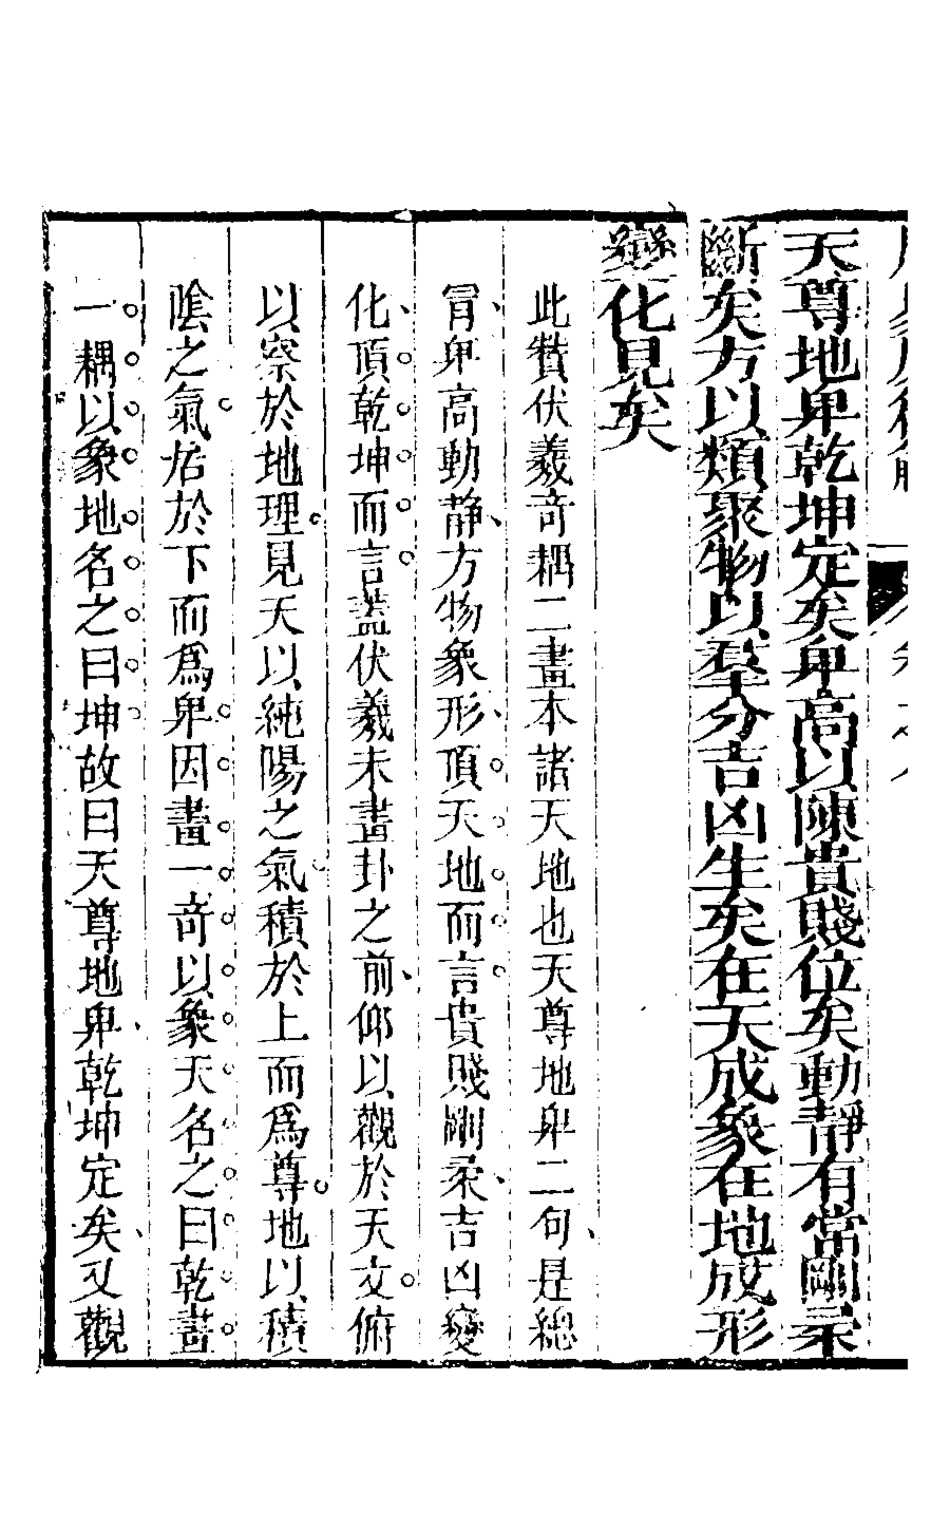 天尊地卑乾坤定矣卑高以陳貴賤位矣動靜有當剛柔
斷矣方以類聚物以羣分吉凶生矣在天成象在地成形
變化見矣
此贊伏羲奇耦二畫本諸天地也天尊地卑二句是總
冐卑高動静方物象形頂天地而言貴賤剛柔吉凶變
化頂乾坤而言蓋伏羲未畫卦之前仰以觀於天文俯
以察於地理見天以純陽之氣積於上而爲尊地以積
陰之氣居於下而爲卑因畫一奇以象天名之曰乾畫
一耦以象地名之曰坤故曰天尊地卑乾坤定矣又觀